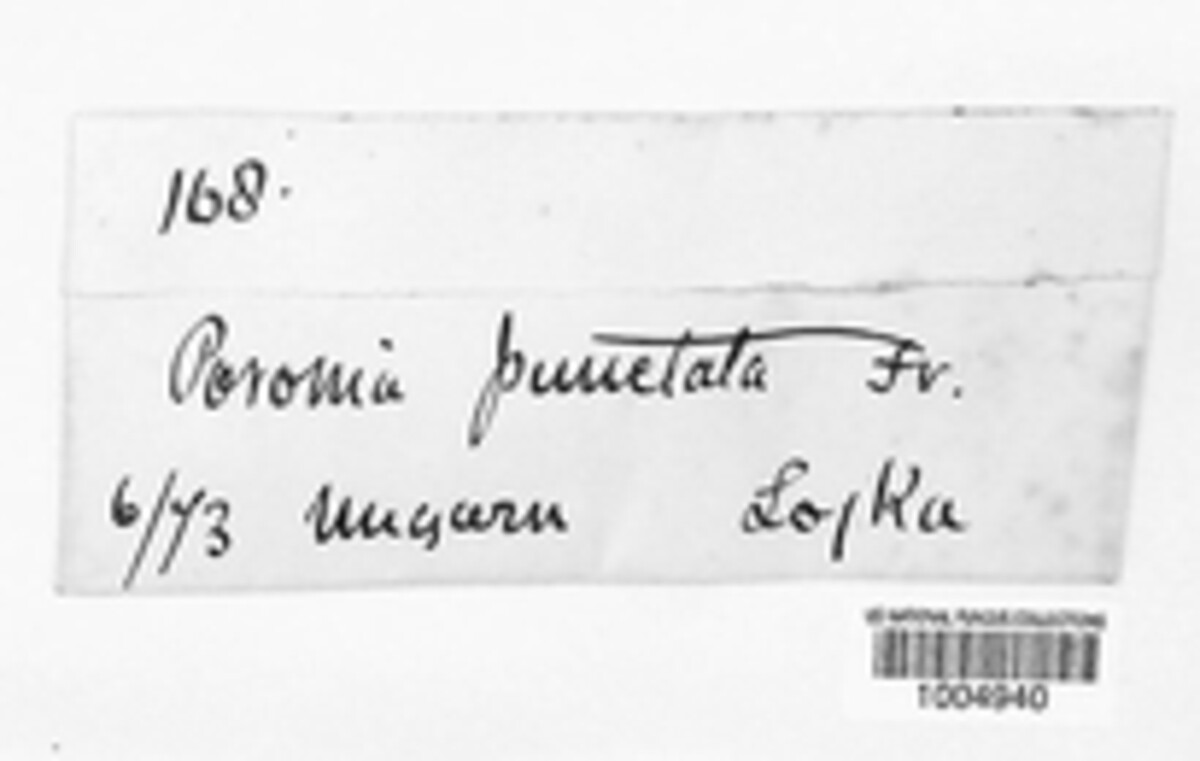 168.
Poronia punctata Fr.
6/73 Ungarn Lojka
US NATIONAL FUNGUS COLLECTIONS
1004940